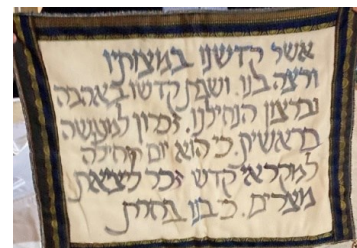 אשר קדשנו במצותיו
ורצה בנו. ושבת קדשו באהבה
וברצון הנחילנו. זכרון למעשה
בראשית. כי הוא יום תחילה
למקראי קדש זכר ליציאת
מצרים. כי בנו בחרת